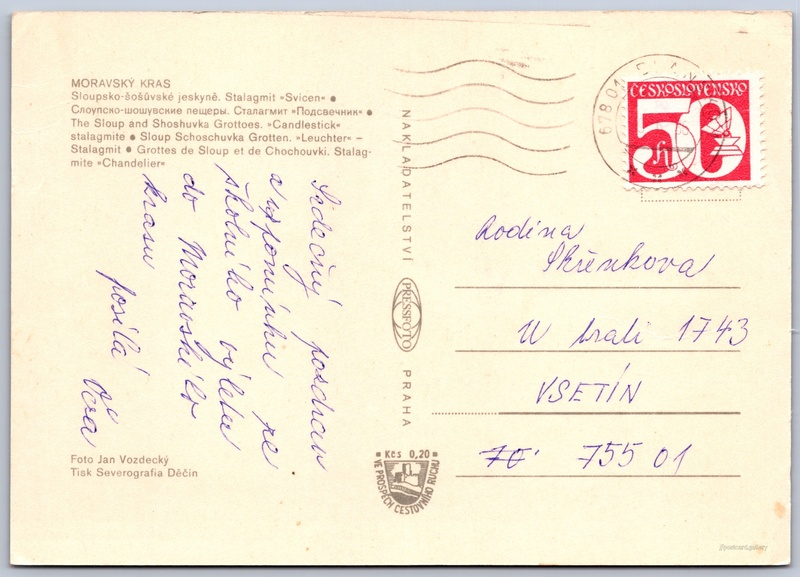 MORAVSKÝ KRAS
Sloupsko-šošůvské jeskyně. Stalagmit »Svícen« •
Слоупско-шошувские пещеры. Сталагмит "Подсвечник" •
The Sloup and Shoshuvka Grottoes. »Candlestick«
stalagmite • Sloup Schoschuvka Grotten. »Leuchter« –
Stalagmit • Grottes de Sloup et de Chochouvki. Stalag-
mite »Chandelier«
Srdečný pozdrav
a vzpomínku ze
školního výletu
do Moravského
krasu
posílá
Věra
Foto Jan Vozdecký
Tisk Severografia Děčín
NAKLADATELSTVÍ
PRESSFOTO
PRAHA
Kčs 0,20
VE PROSPĚCH CESTOVNÍHO RUCHU
678 01
ČESKOSLOVENSKO
50
h
Rodina
Skřenkova
U trati 1743
VSETÍN
755 01
postcard.gallery